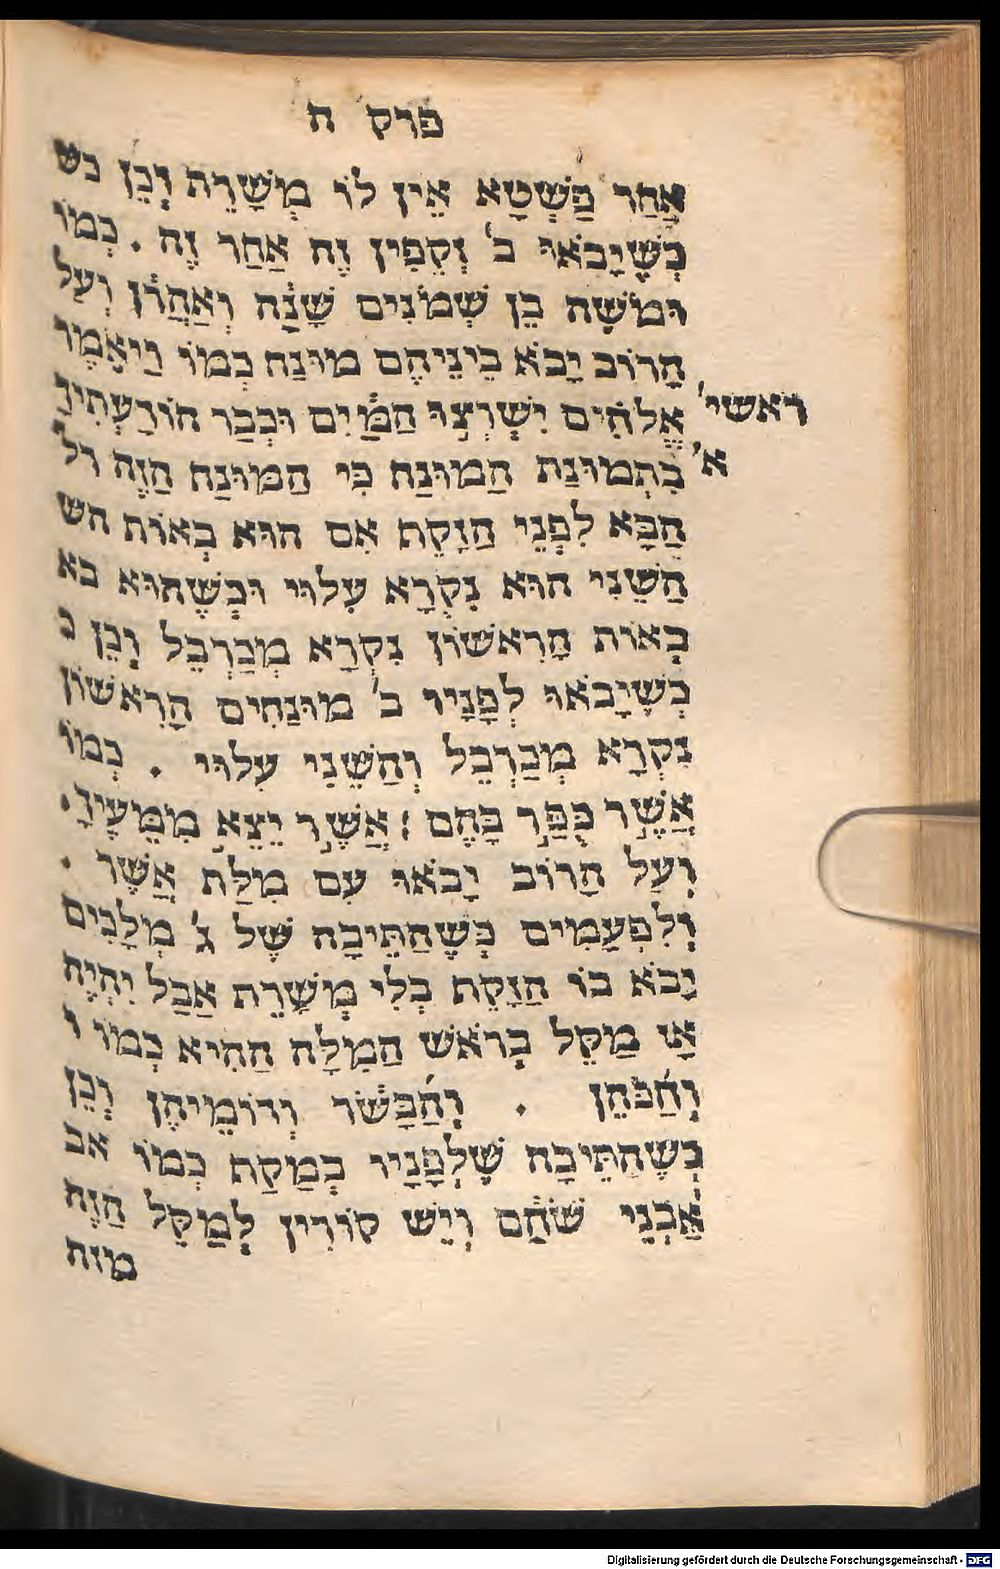 פרק ח
אַחַר פַּשְׁטָא אֵין לוֹ מְשָׁרֵת וְכֵן כש
כְּשֶׁיָבֹאוּ ב' זְקֵפִין זֶה אַחַר זֶה . כְּמוֹ
וּמֹשֶׁה בֶּן שְׁמֹנִים שָׁנָה וְאַהֲרֹן וְעַל
הָרוֹב יָבֹא בֵינֵיהֶם מוּנַח כְּמוֹ וַיֹאמֶר
אֱלֹהִים יִשְׁרְצוּ הַמַּיִם וּכְבַר הוֹדַעְתִּיךָ
ראשי'
בִּתְמוּנַת הַמוּנַח כִּי הַמּוּנַח הַזֶה רל
א'
הַבָּא לִפְנֵי הַזָקֵף אִם הוּא בְּאוֹת הש
הַשֵׁנִי הוּא נִקְרָא עִלוּי וּכְשֶׁהוּא בא
בְּאוֹת הָרִאשׁוֹן נִקְרָא מְכַרְבֵּל וְכֵן כ
כְּשֶׁיָבֹאוּ לְפָנָיו ב' מוּנַחִים הָרִאשׁוֹן
נִקְרָא מְכַרְבֵּל וְהַשֵׁנִי עִלוּי . כְּמוֹ
אֲשֶׁר כִּפֶּר בָּהֶם : אֲשֶׁר יֵצֵא מִמֵּעֶיךָ .
וְעַל הָרוֹב יָבֹאוּ עִם מִלַּת אֲשֶׁר .
וְלִפְעָמִים כְּשֶׁהַתֵּיבָה שֶׁל ג' מְלָכִים
יָבֹא בוֹ הַזָקֵף בְּלִי מְשָׁרֵת אֲבָל יִהְיֶה
אָז מַקֵּל בְּרֹאשׁ הַמִלָּה הַהִיא כְּמוֹ ו
וְהַכֹּהֵן . וְהַבָּשָׂר וְדוֹמֵיהֶן וְכֵן
כְּשֶׁהַתֵּיבָה שֶׁלְּפָנָיו בְּמַקֵף כְּמוֹ אב
אַבְנֵי שֹׁהַם וְיֵשׁ קוֹרִין לְמַקֵל הַזֶה
מזה
Digitalisierung gefördert durch die Deutsche Forschungsgemeinschaft - DFG